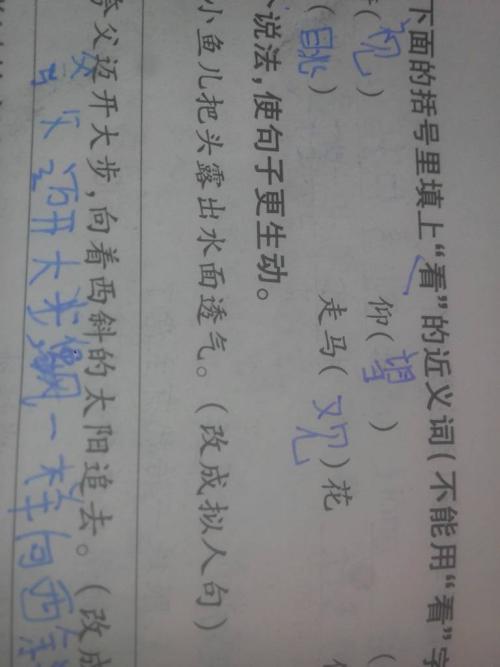 下面的括号里填上“看”的近义词(不能用“看”字
(视) 仰(望) (
(眺) 走马(观)花
说法,使句子更生动。
小鱼儿把头露出水面透气。(改成拟人句)
夸父迈开大步,向着西斜的太阳追去。(改成
夸父迈开大步,像风一样向西